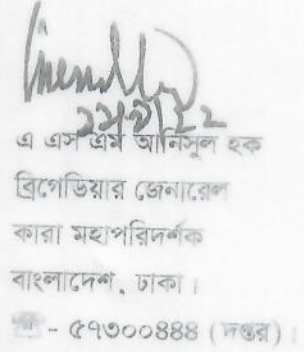 এ এস এম আনিসুল হক
ব্রিগেডিয়ার জেনারেল
কারা মহাপরিদর্শক
বাংলাদেশ, ঢাকা।
☎ - ৫৭৩০০৪৪৪ (দপ্তর)।